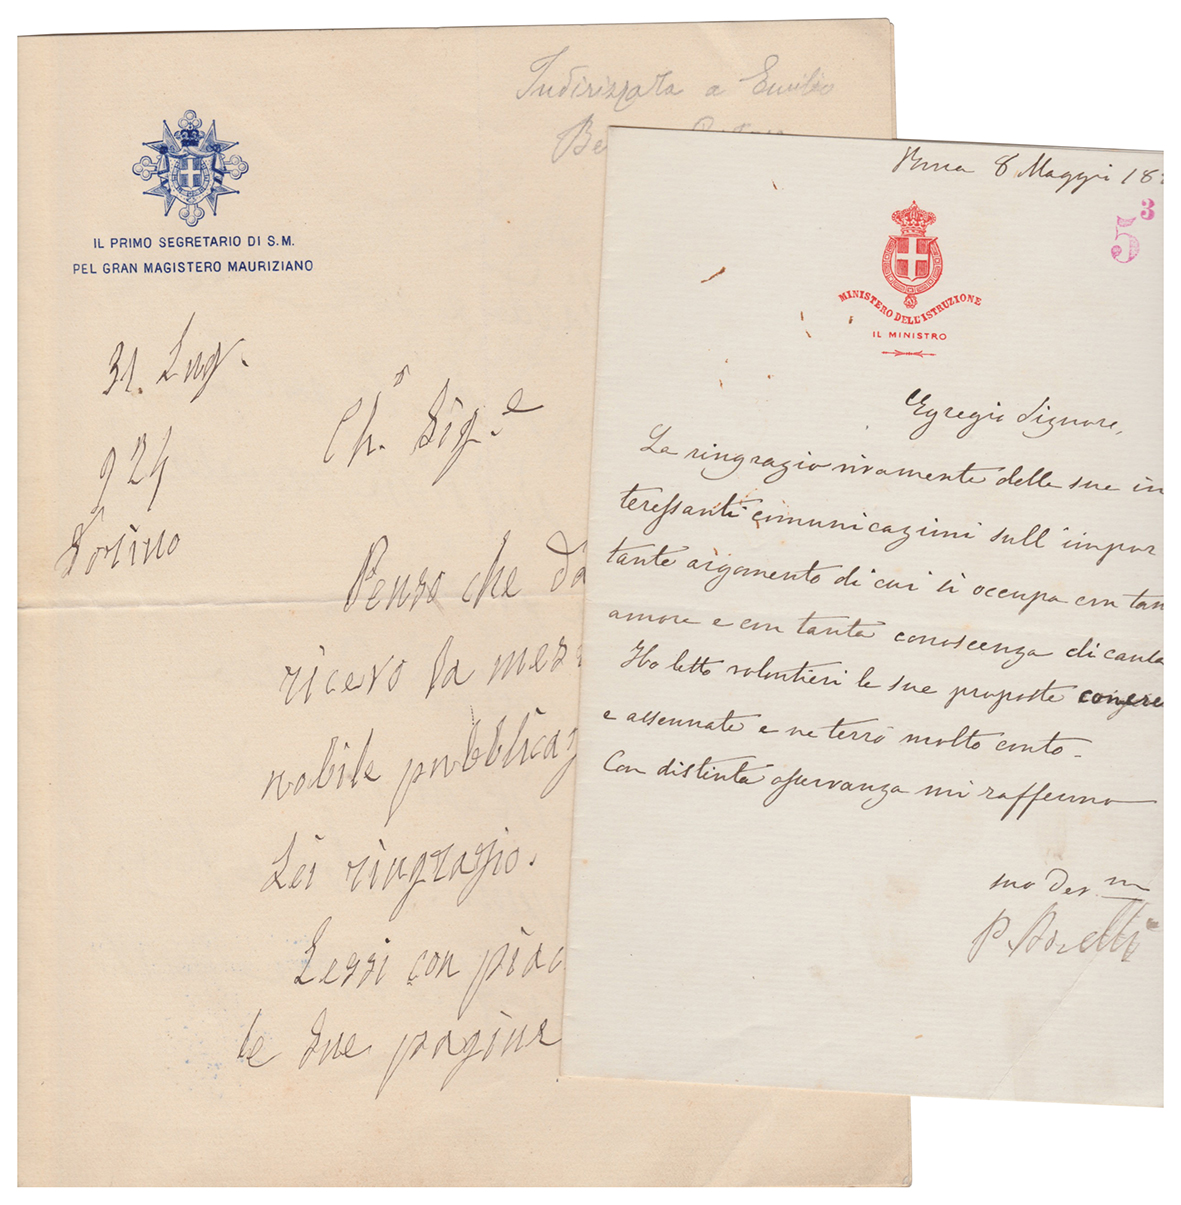 Indirizzata a Emilio
Be
IL PRIMO SEGRETARIO DI S. M.
PEL GRAN MAGISTERO MAURIZIANO
31. Lug.
924
Torino
Ch.º Sig.e
Penso che da
ricevo la mess
nobile pubblicaz
Lei ringrazio.
Lessi con piac
le sue pagine
Roma 8 Maggio 18
53
MINISTERO DELL'ISTRUZIONE
IL MINISTRO
Egregio Signore,
La ringrazio vivamente delle sue in
teressanti comunicazioni sull'impor
tante argomento di cui si occupa con tan
amore e con tanta conoscenza di causa
Ho letto volontieri le sue proposte concre
e assennate e ne terrò molto conto -
Con distinta osservanza mi raffermo
suo Dev.m
P. Boselli